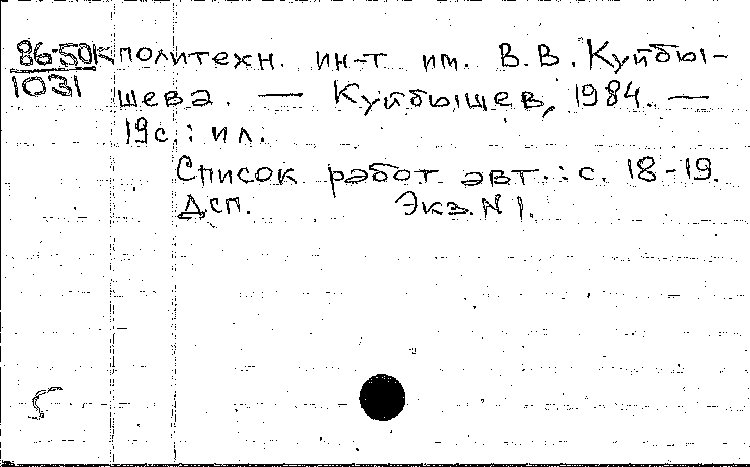 86-50К политехн. ин-т им. В.В. Куйбы-
1031
шева. — Куйбышев, 1984. —
19с.: ил.
Список работ авт.: с. 18-19.
Дсп. Экз. N 1.
5